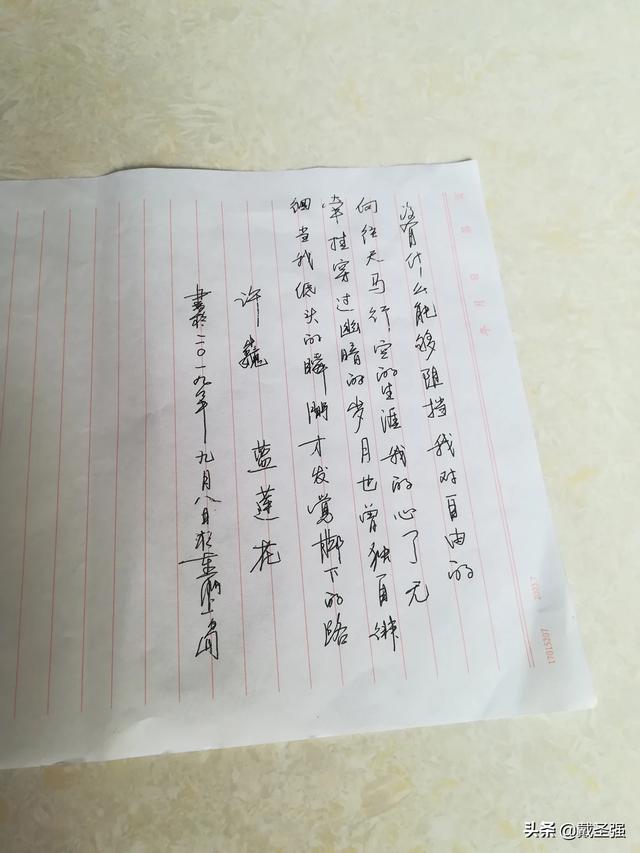 没有什么能够阻挡我对自由的
向往天马行空的生涯我的心了无
牵挂穿过幽暗的岁月也曾独自徘
徊当我低头的瞬间才发觉脚下的路
许巍 蓝莲花
二〇一九年九月八日于
头条 @戴圣强